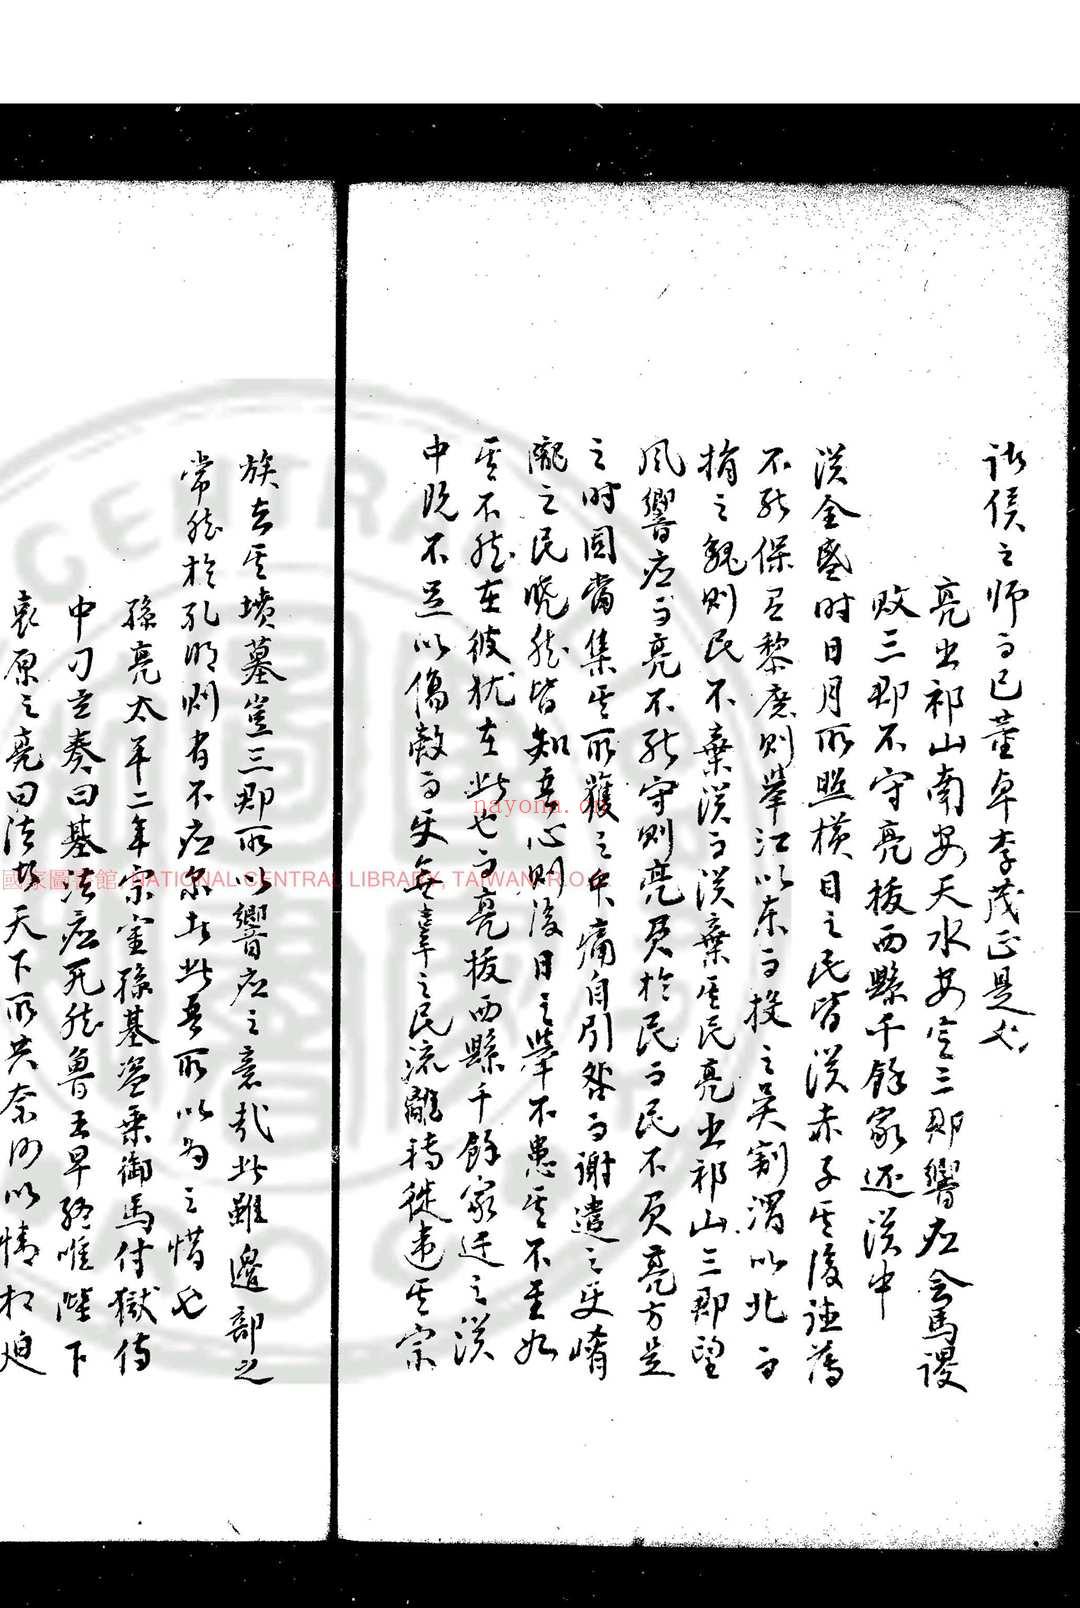 諸侯之師而已董卓李茂正是也
亮出祁山南安天水安定三郡響應会馬謖
敗三郡不守亮拔西縣千餘家还漢中
漢全盛时日月所照橫目之民皆漢赤子其後
不能保有黎庶則舉江以东而投之吴割渭以北而
捐之魏則民不棄漢而漢棄其民亮出祁山三郡望
風響应而亮不能守則亮負於民而民不負亮方是
之时固當集其所獲之衆痛自引咎而謝遣之使
隴之民曉然皆知吾心則後日之舉不患其不至如
其不然在彼犹在此也而亮拔西縣千餘家迁之漢
中既不足以傷敵而使無辜之民流離轉徙弃其宗
族去其墳墓豈三郡所以響应之意哉此雖邊部之
常然於孔明則有不应尔者此吾所以为之惜也
孫亮太平二年宗室孫基盜乘御馬付獄侍
中刁玄奏曰基法应死然魯王早終唯陛下
哀原之亮曰法者天下所共奈何以情相迫
國家圖書館 NATIONAL CENTRAL LIBRARY, TAIWAN R.O.C
CENTRAL